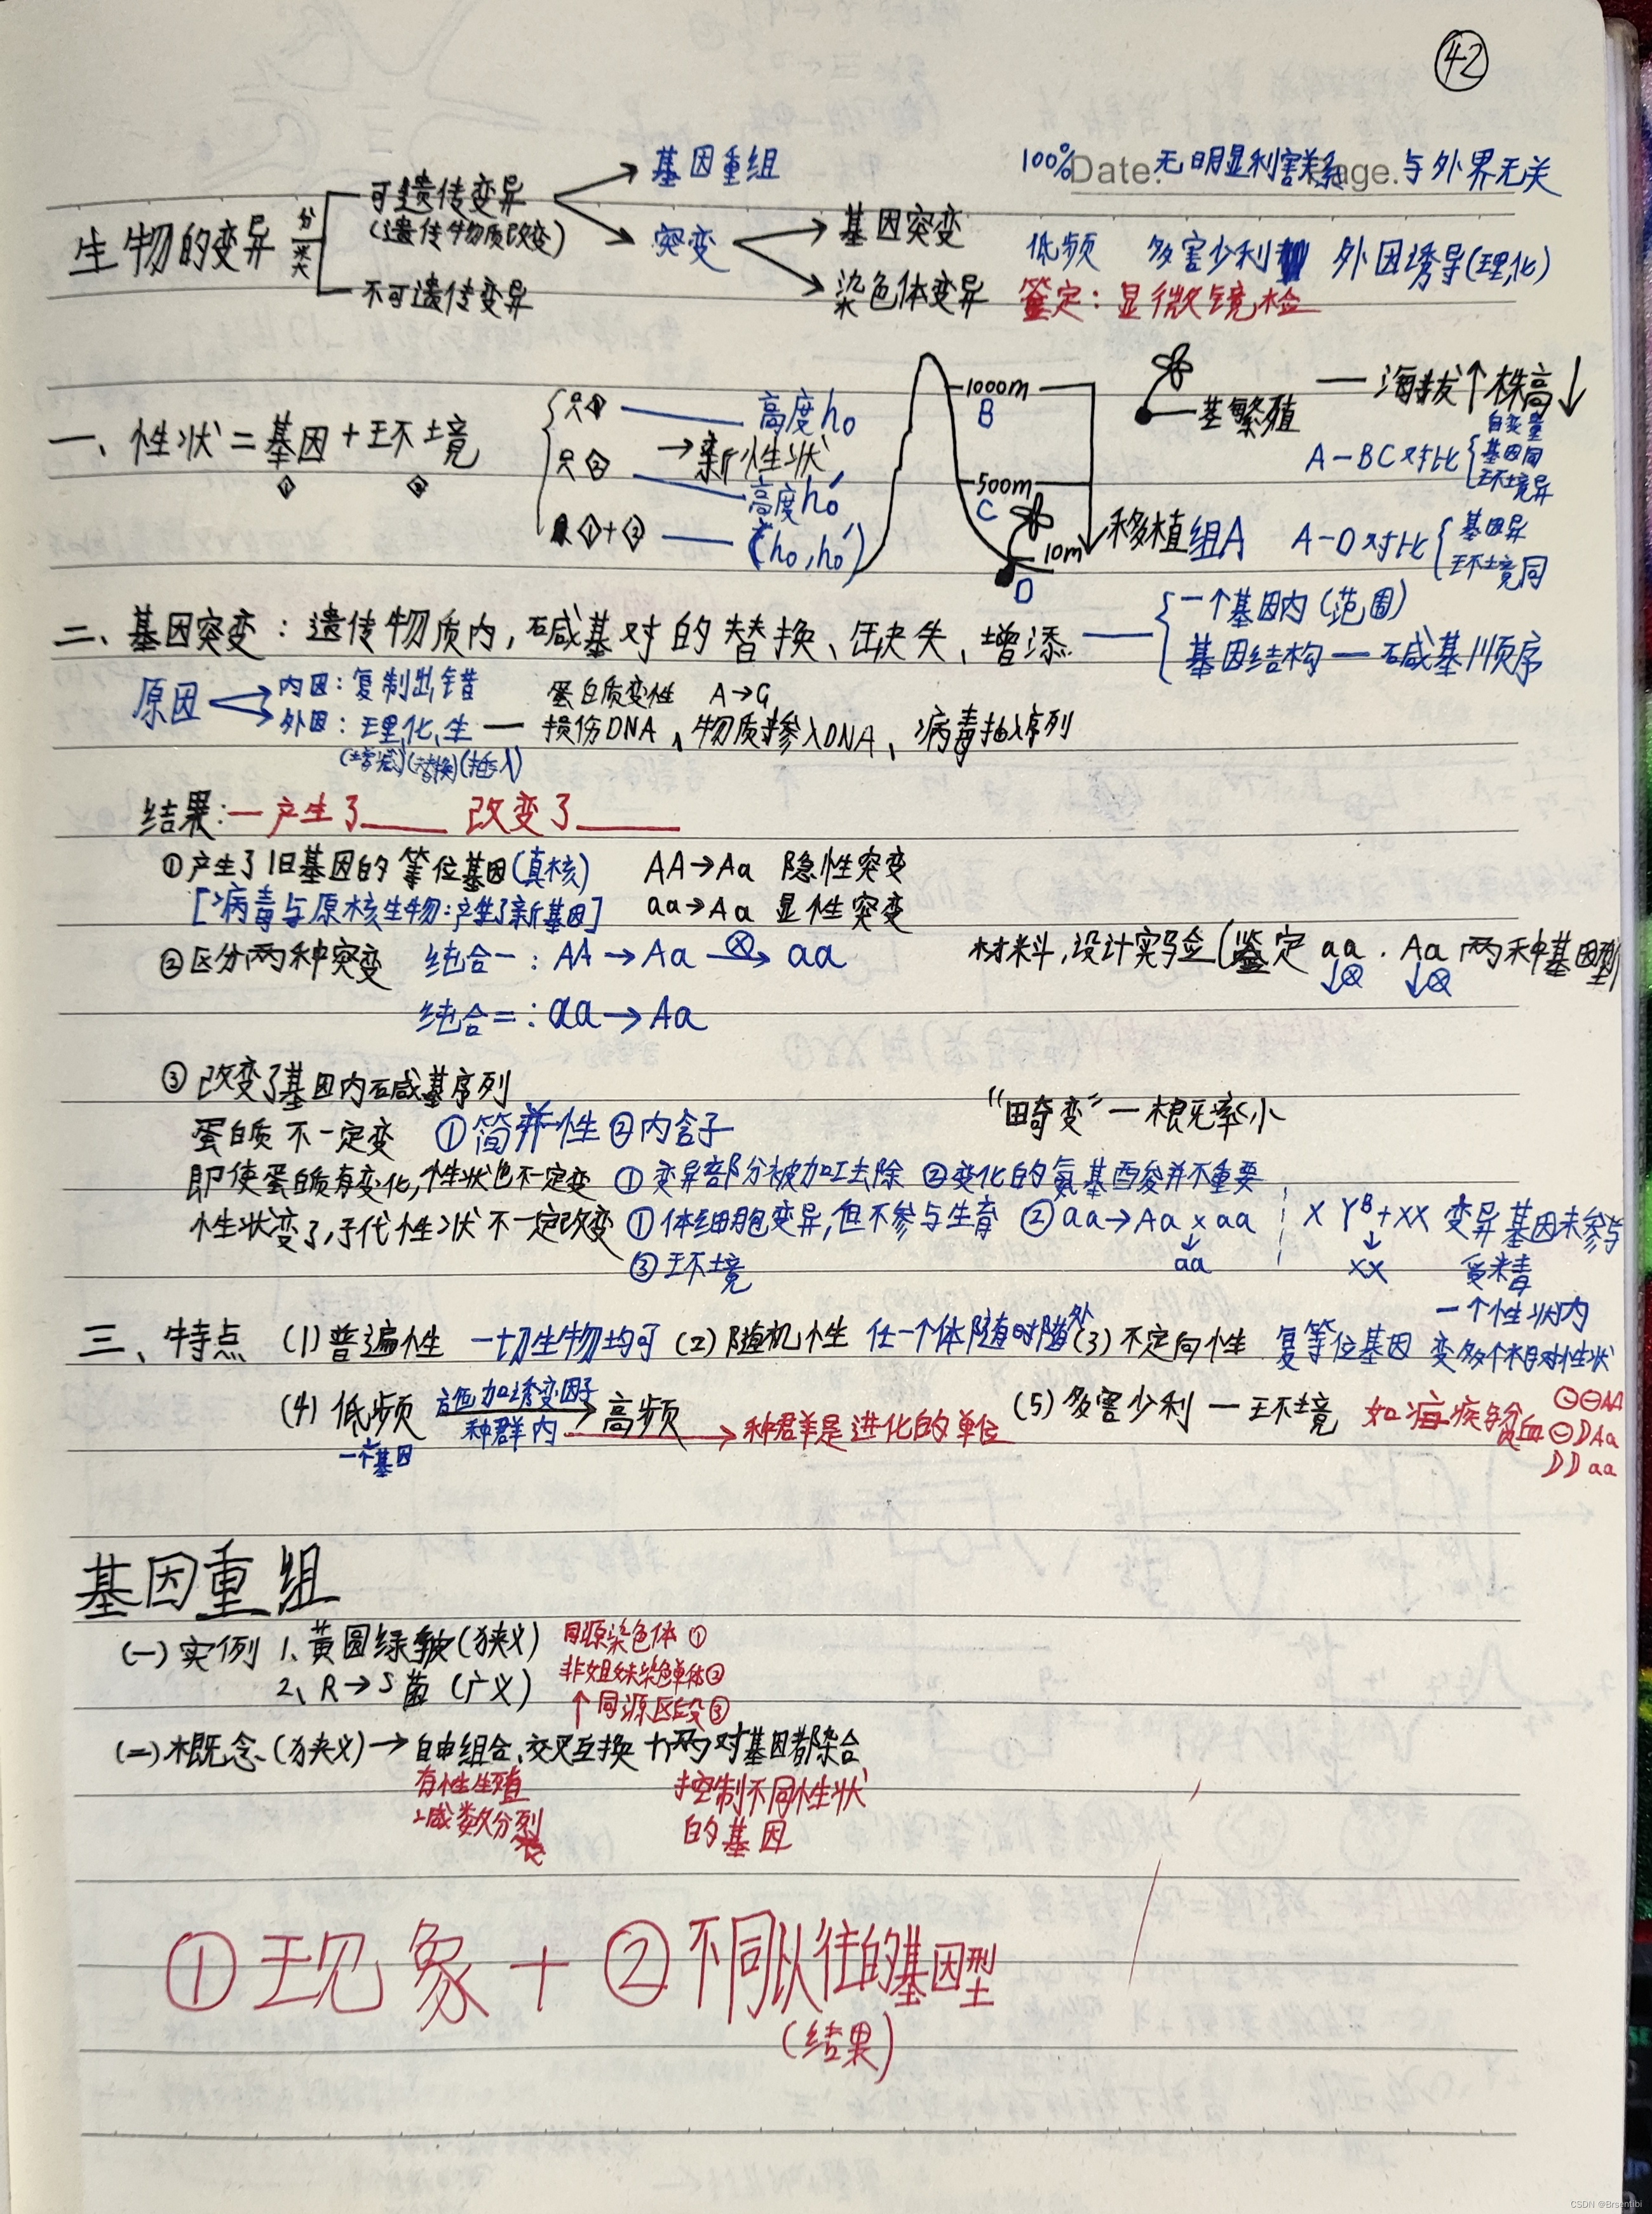 42
Date. Page.
基因重组 100% 无明显利害关系 与外界无关
可遗传变异
(遗传物质改变)
生物的变异 分类
突变 基因突变 低频 多害少利 外因诱导(理,化)
不可遗传变异
染色体变异 鉴定:显微镜检
一、性状=基因+环境
① ②
只① 高度h₀
→新性状
只② 高度h₀′
①+② (h₀,h₀′)
1000m
B
500m
C
10m
D
茎繁殖 — 海拔↑株高↓
自变量
A-BC对比 基因同
环境异
移植组A A-D对比 基因异
环境同
二、基因突变:遗传物质内,碱基对的替换、缺失、增添 一个基因内(范围)
基因结构—碱基顺序
原因 内因:复制出错 蛋白质变性 A→G
外因:理,化,生 — 损伤DNA、物质掺入DNA、病毒插入序列
(增减)(替换)(插入)
结果:—产生了____ 改变了____
①产生了旧基因的等位基因(真核) AA→Aa 隐性突变
[病毒与原核生物:产生了新基因] aa→Aa 显性突变
②区分两种突变 纯合一:AA→Aa ⊗→ aa 材料,设计实验(鉴定 aa. Aa 两种基因型)
↓⊗ ↓⊗
纯合二:aa→Aa
③改变了基因内碱基序列
“畸变”—概率小
蛋白质不一定变 ①简并性②内含子
即使蛋白质有变化,性状也不一定变 ①变异部分被加工去除 ②变化的氨基酸并不重要
性状变了,子代性状不一定改变 ①体细胞变异,但不参与生育 ②aa→Aa×aa XYᴮ+XX 变异基因未参与
↓ aa ↓ XX 受精
③环境
三、特点 (1)普遍性 一切生物均可 (2)随机性 任一个体随时随处 (3)不定向性 复等位基因 变多个相对性状
一个性状内
(4)低频 施加诱变因子 →高频 (5)多害少利—环境 如 疾 贫血 AA
种群内 → 种群是进化的单位
一个基因
Aa
aa
基因重组
(一)实例 1、黄圆绿皱(狭义) 同源染色体①
非姐妹染色单体②
2、R→S菌(广义)
↑同源区段③
(二)概念(狭义)→自由组合,交叉互换 两对基因都杂合
有性生殖 控制不同性状
减数分裂 的基因
①现象+②不同以往的基因型
(结果)
CSDN @Brsentibi